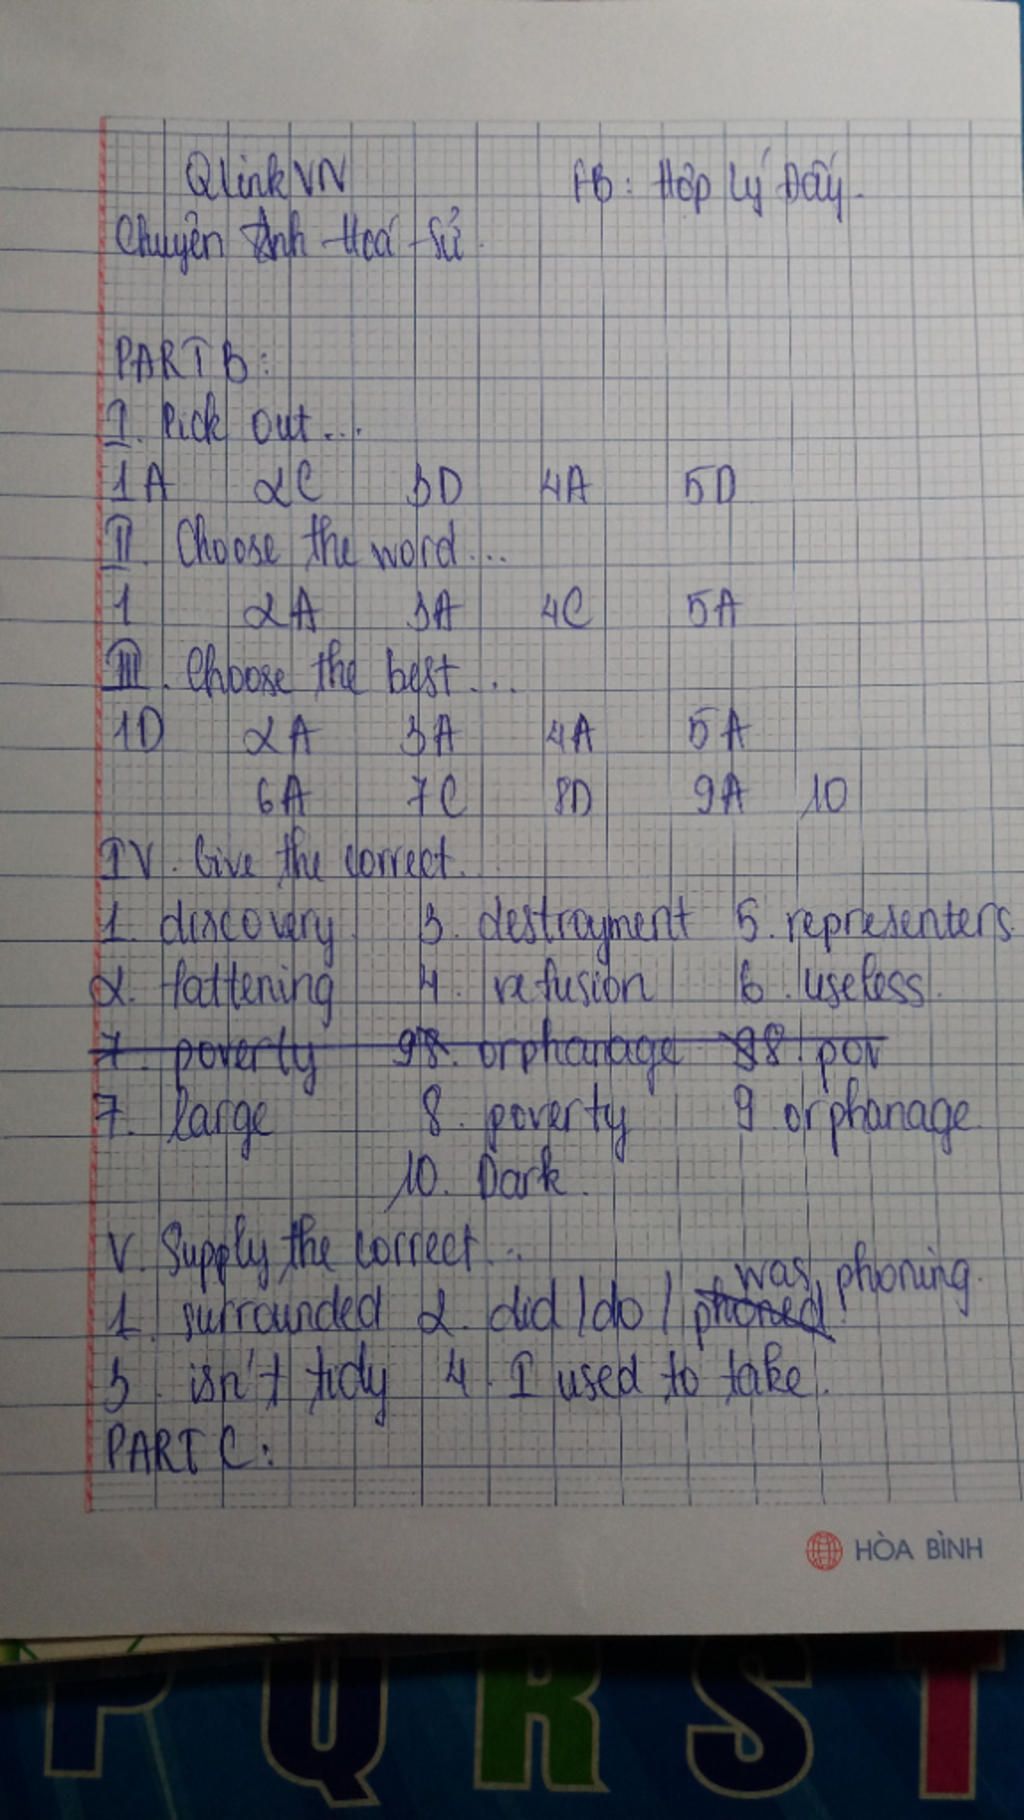 QlinkVN FB: Hợp Lý Đấy.
Chuyên Anh - Hoá - Sử.
PART B:
I. Pick out...
1A 2C 3D 4A 5D
II. Choose the word...
1 2A 3A 4C 5A
III. Choose the best...
1D 2A 3A 4A 5A
6A 7C 8D 9A 10
IV. Give the correct...
1. discovery 3. destroyment 5. representers
2. fattening 4. refusion 6. useless.
7. poverty 98. orphanage 98. pov
7. large 8. poverty 9 orphanage
10. Dark.
V. Supply the correct...
was phoning.
1. surrounded 2. did / do / phoned
3. isn't tidy 4. I used to take.
PART C:
HÒA BÌNH
P Q R S T